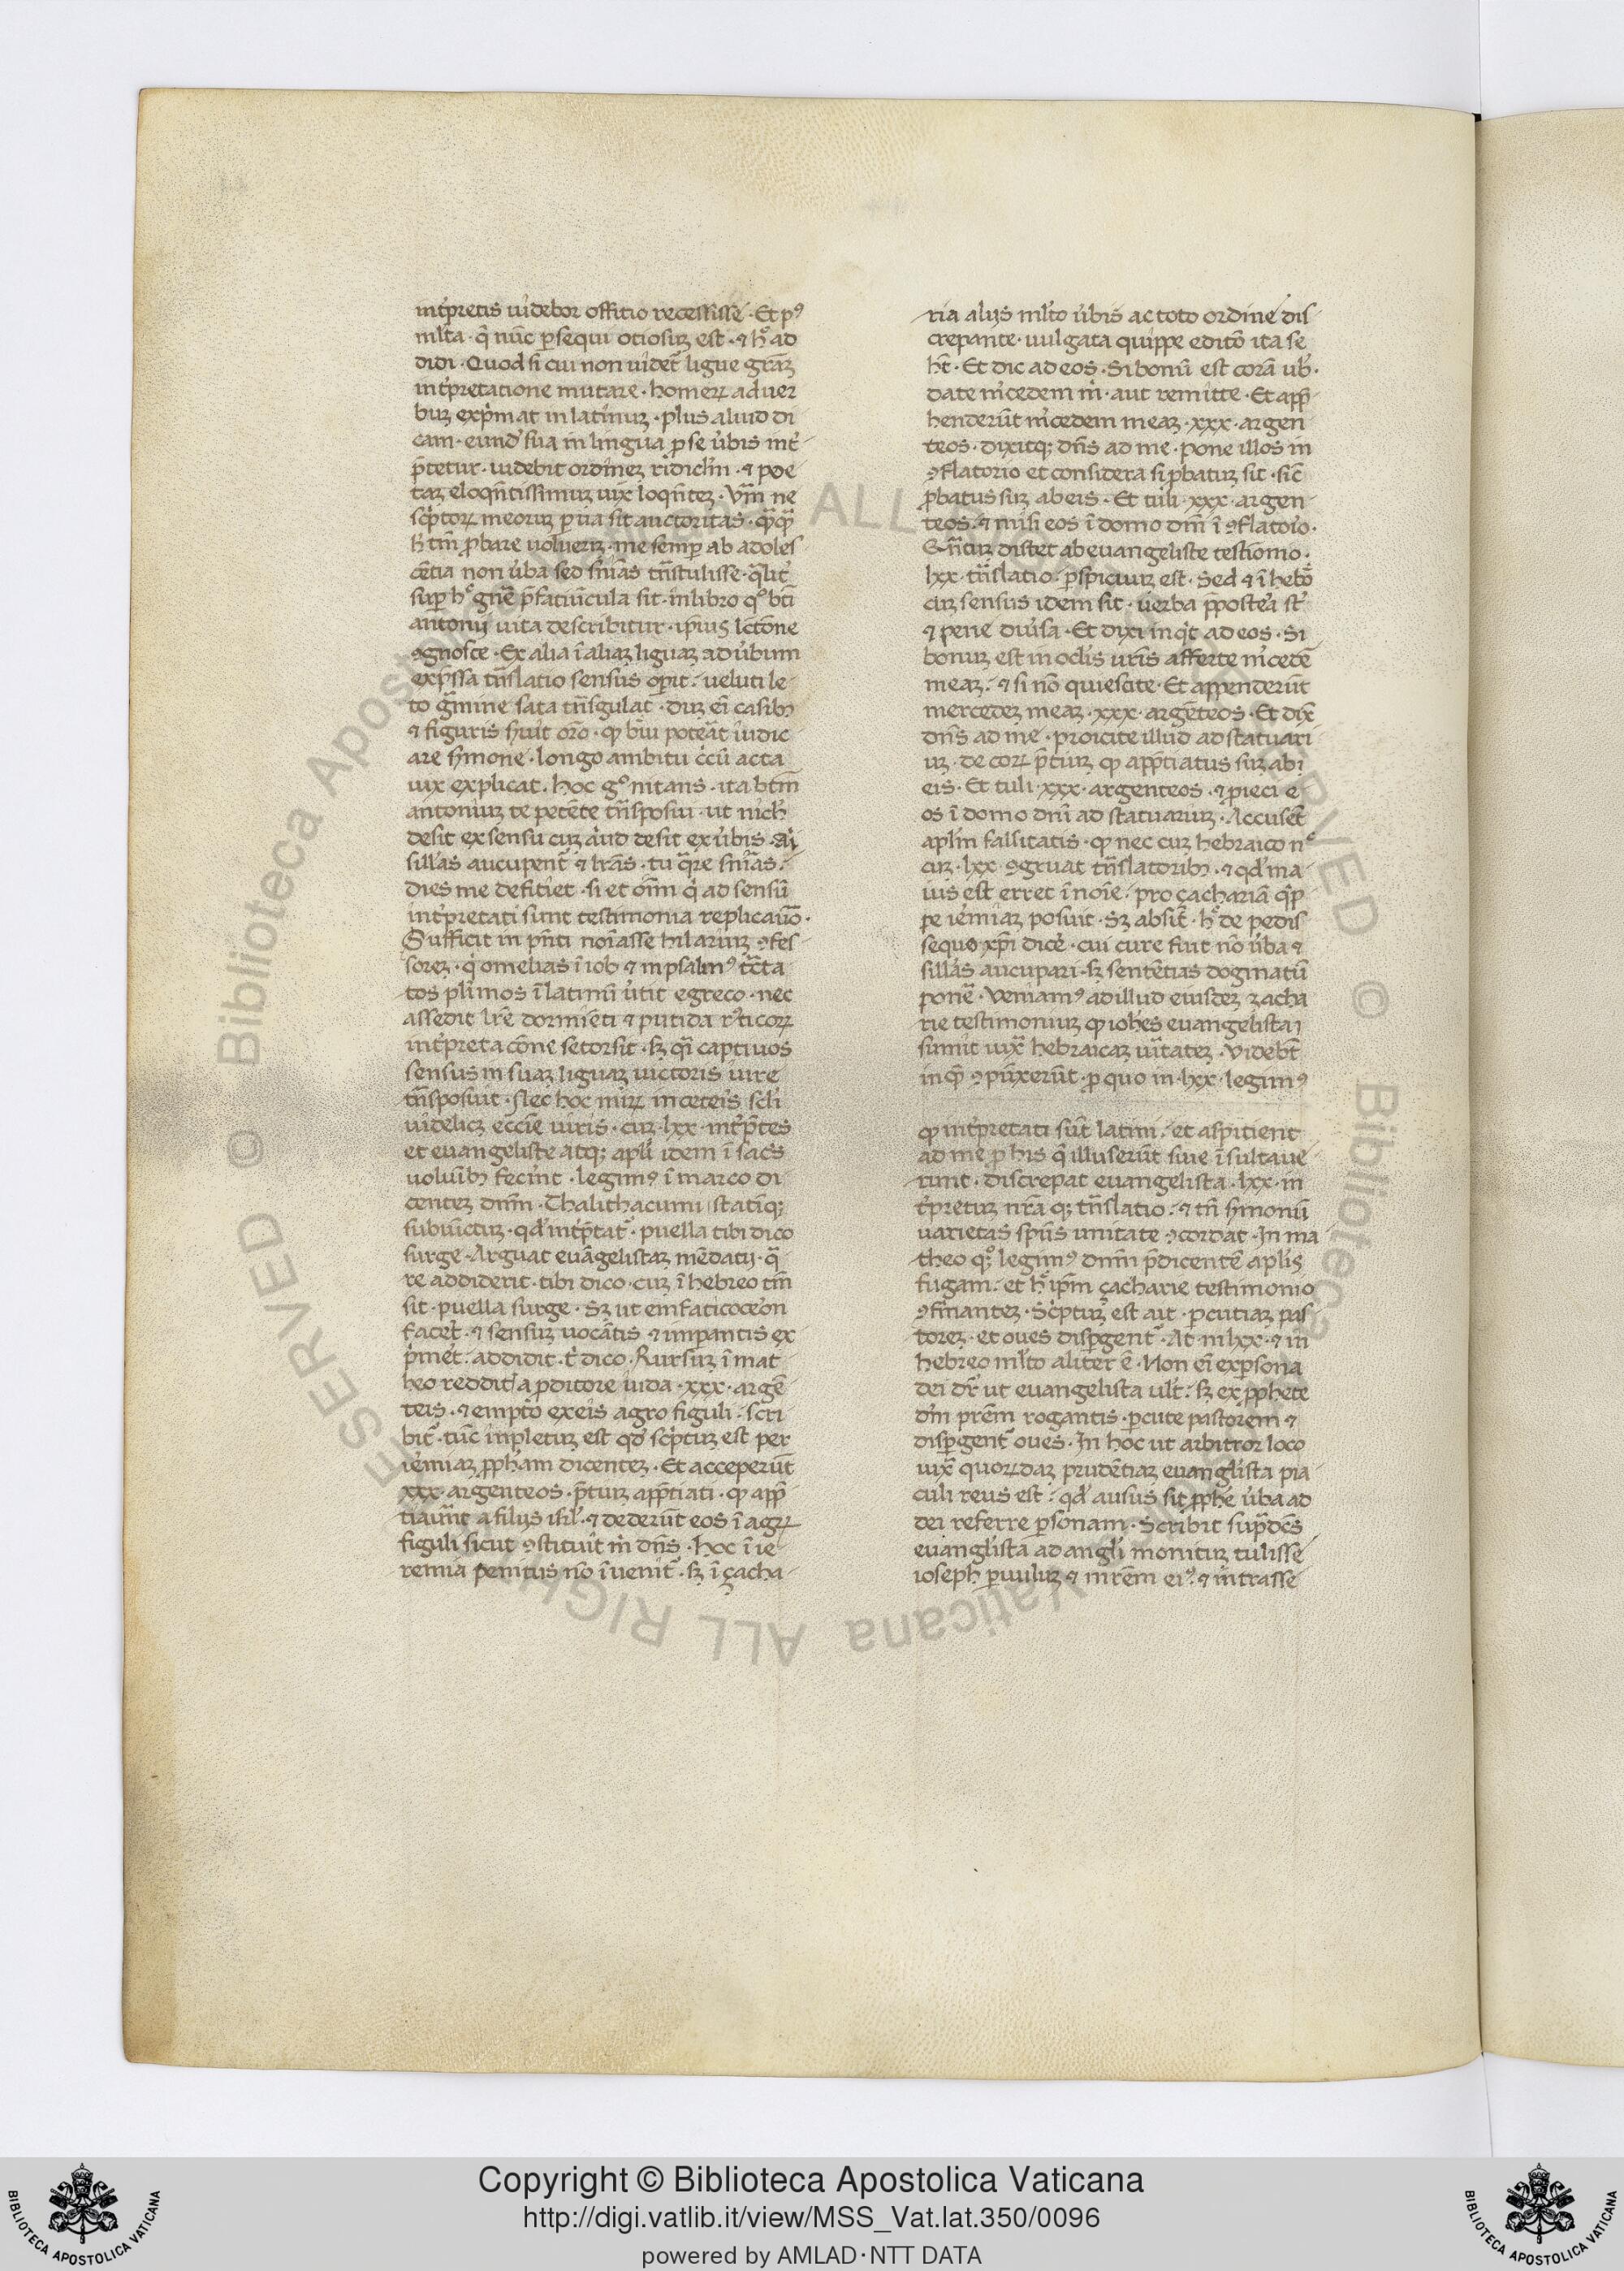 int̄pretis uidebor offitio recessisse · Et pꝰ
ml̄ta · q̄ nūc ꝑsequi otiosuꝫ est · ⁊ hͦ ad
didi · Quod si cui non uidet᷑ ligue gr̄aꝫ
int̄pretatione mutare · homerꝝ ad uer
buꝫ exp̄mat in latinuꝫ · plus aliud di
cam · eund̄ sua in lingua ꝓse ūbis int̄
p̄tetur · uidebit ordineꝫ ridicl̄m · ⁊ poe
taꝫ eloqn̄tissimuꝫ uix loqn̄teꝫ · Vr̄m ne
sc̄ptorꝝ meoruꝫ ꝑua sit auctoritas · q̄q̄
h̄ tm̄ ꝓbare uolueriꝫ · me semꝑ ab adoles
cētia non ūba sed sn̄ias tn̄stulisse · q̄lit̄
suꝑ hͨ gn̄e p̄fatiūcula sit · in libro qͦ bt̄i
antonij uita describitur · ip̄iuꝰ lct̄one
ꝯgnosce · Ex alia ī aliaꝫ liguaꝫ ad ūbum
exp̄ssa tn̄slatio sensus oꝑit · ueluti le
to ḡmine sata tn̄sgulat · duꝫ eī casibꝫ
⁊ figuris ẜuit or̄o · ꝙ bͥui poteāt īudic
are ẜmone · longo ambitu c̄cū acta
uix explicat · hoc gͦ nitans · ita bt̄m
antoniuꝫ te petēte tn̄sposiui · ut nich̄
desit ex sensu cuꝫ aͥud desit ex ūbis · Aͥ
sillās aucupent᷑ ⁊ lr̄as · tu q̄re sn̄ias ·
dies me defitiet · si et om̄ q̄ ad sensū
int̄pretati sunt testimonia replicauo᷑ ·
Sufficit in pn̄ti noīasse hilariuꝫ ꝯfes
soreꝫ · q̄ omelias ī iob ⁊ in psalmꝰ t̄cta
tos pl̄imos ī latinū ūtit egreco · nec
assedit lr̄e dormiēti ⁊ putida rͣticorꝝ
int̄pretacōne se torsit · sꝫ q̄i captiuos
sensus in suaꝫ liguaꝫ uictoris iure
tn̄sposuit · Nec hoc mirꝝ in ceteīs scl̄i
uidelicꝫ ecc̄ie uiris · cuꝫ · lxx · int̄p̄tes
et euangeliste atqꝫ apl̄i idem ī sac̄s
uoluībꝫ fecīnt · legimꝰ ī marco di
centeꝫ dn̄m · Thalithacumi statīqꝫ
subiūctuꝫ · qd̄ int̄p̄tat᷑ · puella tibi dico
surge · Arguat euāgelistaꝫ mēdatij · q̄
re addiderit · tibi dico · cuꝫ ī hebreo tm̄
sit · puella surge · Sꝫ ut emfaticocēon
facet̄ · ⁊ sensuꝫ uocātis ⁊ imꝑantis ex
p̄mēt · addidit · t̄ dico · Rursuꝫ ī mat
heo redditͥ a ꝓditore iuda · xxx · argē
teis · ⁊ empt̄o ex eis agro figuli · scri
bit᷑ · tūc inpletuꝫ est qd̄ sc̄ptuꝫ est per
iēmiaꝫ ꝓph̄am dicenteꝫ · Et acceperūt
xxx · argenteos · p̄tuꝫ app̄tiati · ꝙ app̄
tiauūt a filijs isr̄l · ⁊ dederūt eos ī agrꝝ
figuli sicut ꝯstituit m̄ dn̄s · hoc ī ie
remia penitus nō īuenit᷑ · sꝫ ī çacha
ria alijs ml̄to ūbis ac toto ordine dis
crepante · uulgata quippe editō ita se
ht̄ · Et dic ad eos · Si bonū est corā ub̄ ·
date m̄cedem m̄ · aut remitte · Et app̄
henderūt m̄cedem meaꝫ · xxx · argen
teos · dixitqꝫ dn̄s ad me · pone illos in
ꝯflatorio et considera si ꝓbatuꝫ sit · sic̄
ꝓbatus suꝫ ab eis · Et tuli · xxx · argen
teos · ⁊ misi eos ī domo dn̄i ī ꝯflatoīo ·
Qn̄tuꝫ distet ab euangeliste testīomo ·
lxx · tn̄slatio · ꝑspicuuꝫ est · Sed ⁊ ī hebͦ
cuꝫ sensus idem sit · uerba p̄posteͣ st̄
⁊ pene diuīsa · Et dixi inqͥt ad eos · Si
bonuꝫ est in ocl̄is ur̄is afferte m̄cedē
meaꝫ · ⁊ si nō quiescite · Et appenderūt
mercedeꝫ meaꝫ · xxx · argēteos · Et dix̄
dn̄s ad me · proicite illud ad statuari
uꝫ · decorꝝ p̄tiuꝫ ꝙ app̄tiatus suꝫ abi
eis · Et tuli · xxx · argenteos · ⁊ ꝓieci e
os ī domo dn̄i ad statuariuꝫ · Accuset᷑
apl̄m falsitatis · ꝙ nec cuꝫ hebraico nͨ
cuꝫ · lxx · ꝯgruat tn̄slatoribꝫ · ⁊ qd̄ ma
ius est erret ī noīe · pro çachariā q̄p
pe iēmiaꝫ posuit · Sꝫ absit · hͦ de pedis
sequo xp̄i dicē · cui cure fuit nō ūba ⁊
sillās aucupari · sꝫ sentētias dogmatū
ponē · Veniamꝰ ad illud eiusdeꝫ zacha
rie testimoniuꝫ ꝙ ioh̄es euangelista
sumit iuxͣ hebraicaꝫ uītateꝫ · Videbt̄
in q̄ ꝯpūxerūt · ꝓ quo in · lxx · legimꝰ
ꝙ int̄pretati sūt latini · et aspitient
ad me ꝓ his q̄ illuserūt siue īsultaue
runt · discrepat euangelista · lxx · in
t̄pretuꝫ nr̄a qꝫ tn̄slatio · ⁊ tn̄ ẜmonū
uarietas sp̄us unitate ꝯcordat · In ma
theo qͦꝫ legimꝰ dn̄m p̄dicentē aplīs
fugam · et hͦ ip̄m çacharie testimonio
ꝯfīmanteꝫ · Sc̄ptuꝫ est ait · ꝑcutiaꝫ pas
toreꝫ · et oues disꝑgent᷑ · At in lxx · ⁊ in
hebreo ml̄to aliter ē · Non eī ex ꝑsona
dei dr̄ ut euangelista ult̄ · sꝫ ex ꝓphete
dm̄ prēm rogantis · ꝑcute pastorem ⁊
disꝑgent᷑ oues · In hoc ut arbitror loco
iuxͣ quorꝝdaꝫ prudētiaꝫ euangl̄ista pia
culi reus est · qd̄ ausus sit ꝓphē ūba ad
dei referre ꝑsonam · Scribit sup̄dc̄s
euangl̄ista ad angl̄i monituꝫ tulisse
ioseph ꝑuuluꝫ ⁊ mr̄em eiꝰ · ⁊ intrasse
© Biblioteca Apostolica Vaticana ALL RIGHTS RESERVED
Copyright © Biblioteca Apostolica Vaticana
http://digi.vatlib.it/view/MSS_Vat.lat.350/0096
powered by AMLAD·NTT DATA
BIBLIOTECA APOSTOLICA VATICANA
BIBLIOTECA APOSTOLICA VATICANA